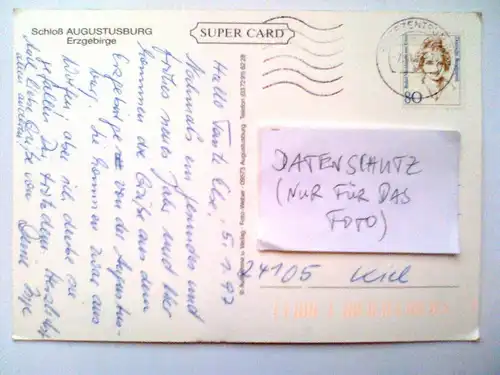 Schloß AUGUSTUSBURG
Erzgebirge
SUPER CARD
BRIEFZENTRUM
Deutsche Bundespost
80
Hallo Tante
5.1.97
Nochmals ein gesundes und
frohes neues Jahr und hier
kommen die Grüße aus dem
Erzgebirge von der Augustus-
burg. Sie kommen zwar aus
aber ich denke sie
gefallen Dir trotzdem. Herzliche
und liebe Grüße von
© Aufnahme u. Verlag Foto-Weber · 09573 Augustusburg · Telefon (037291) 6228
DATENSCHUTZ
(NUR FÜR DAS
FOTO)
24105 Kiel